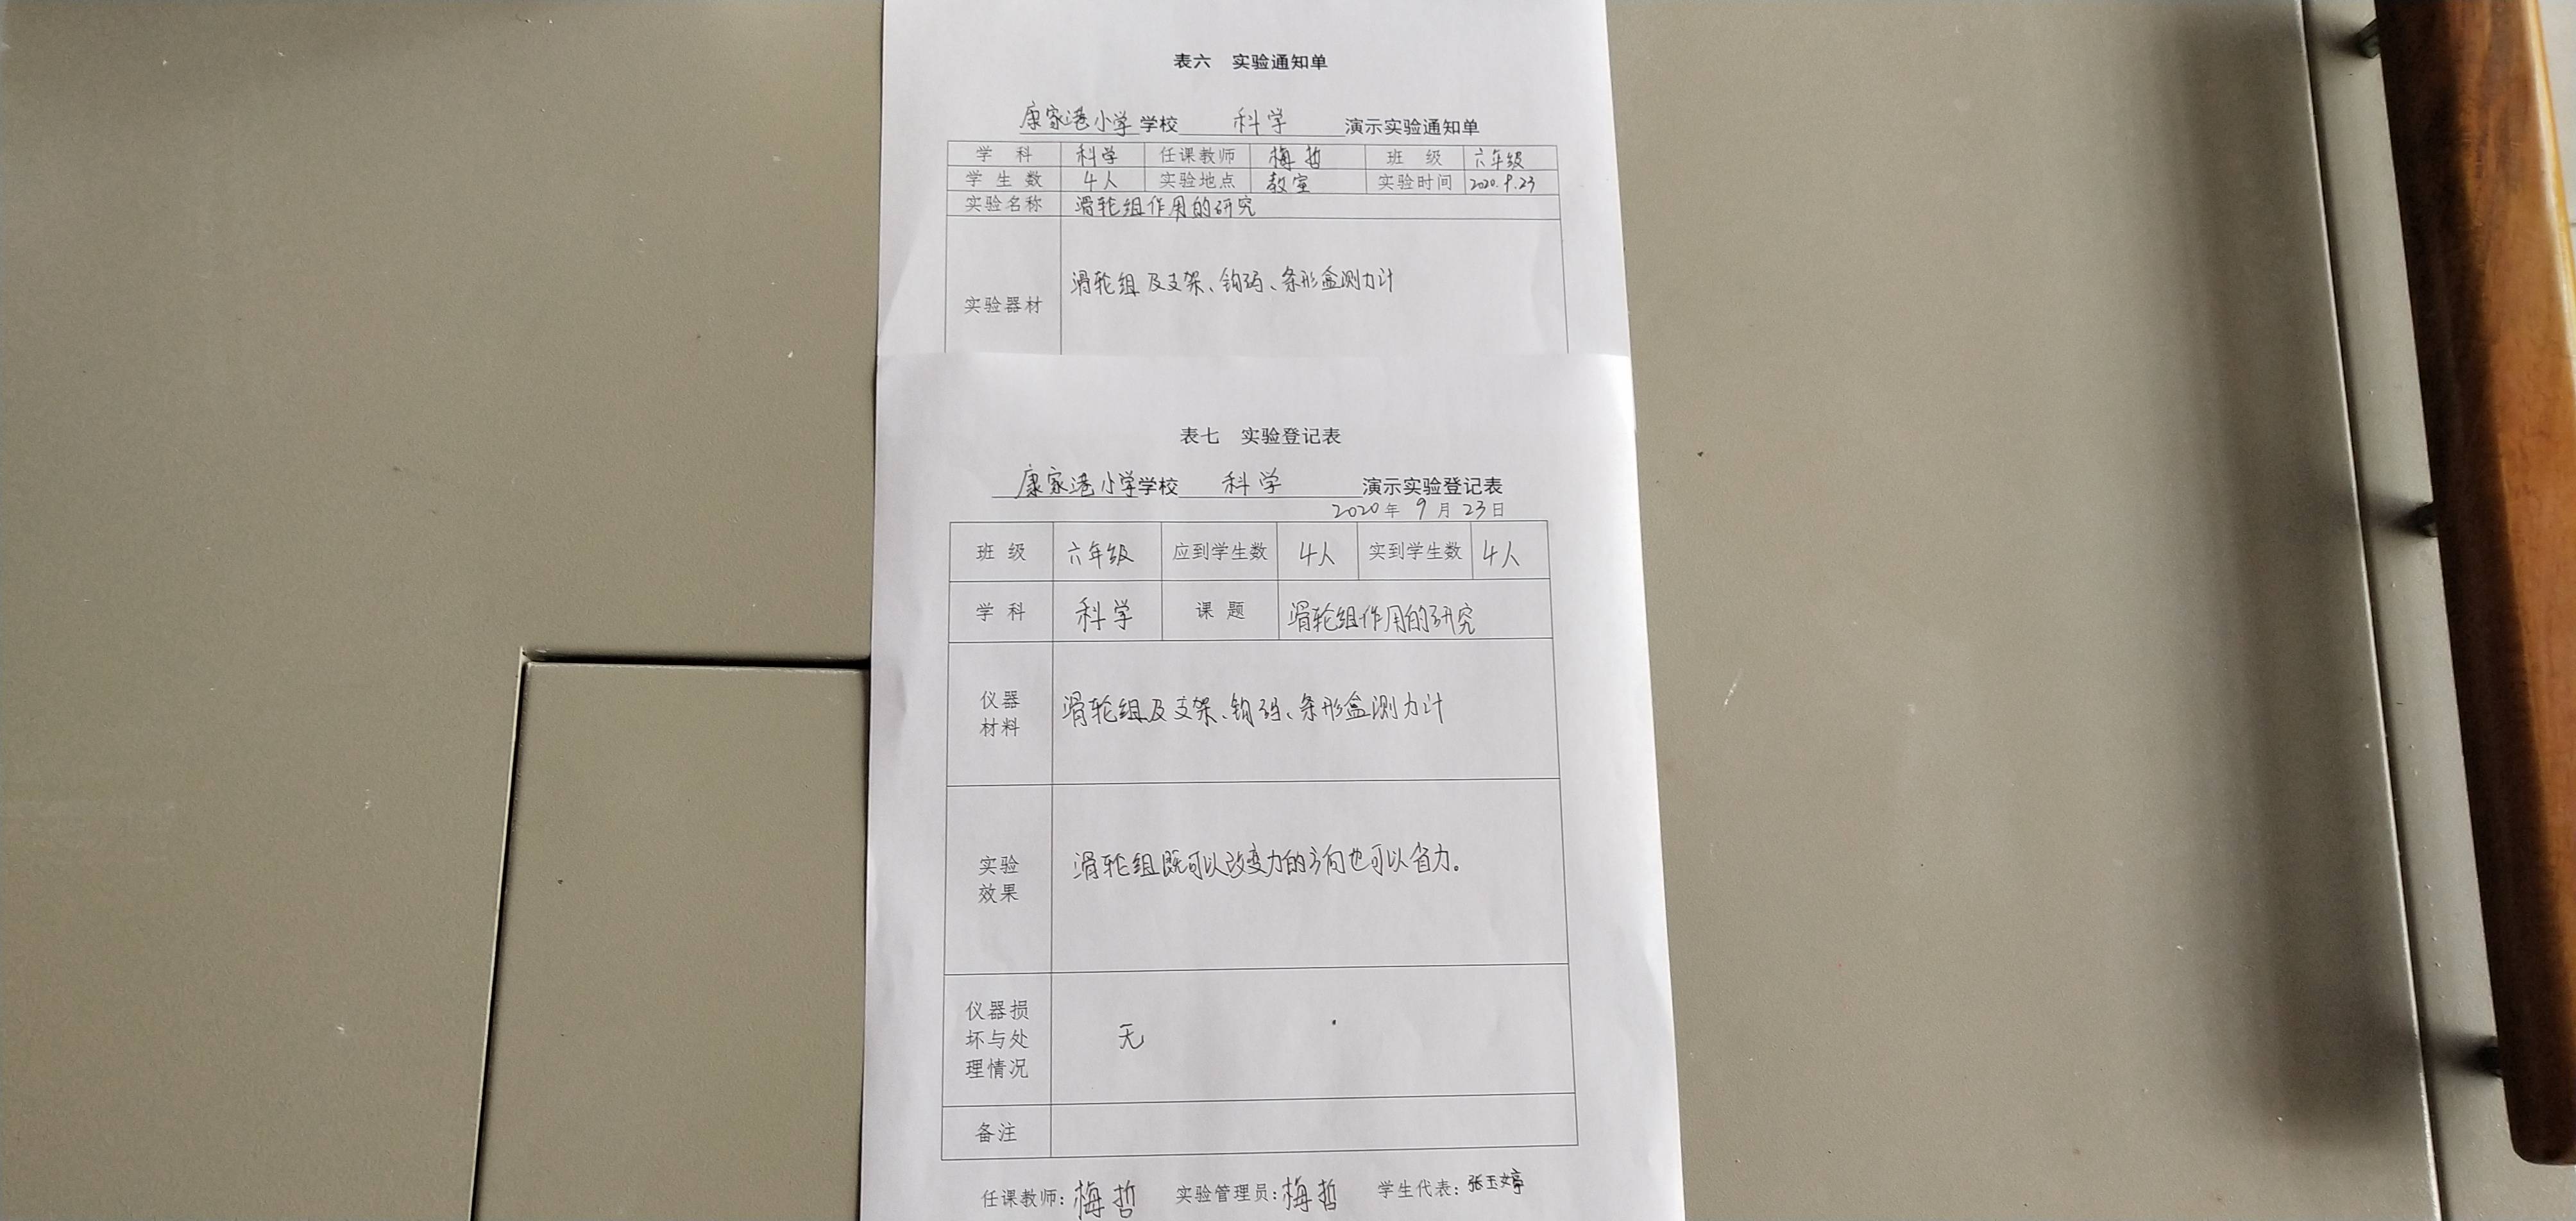 表六 实验通知单
康家港小学学校 科学 演示实验通知单
学科 科学 任课教师 梅哲 班级 六年级
学生数 4人 实验地点 教室 实验时间 2020.9.23
实验名称 滑轮组作用的研究
实验器材 滑轮组及支架、钩码、条形盒测力计
表七 实验登记表
康家港小学学校 科学 演示实验登记表
2020年9月23日
班级 六年级 应到学生数 4人 实到学生数 4人
学科 科学 课题 滑轮组作用的研究
仪器
材料 滑轮组及支架、钩码、条形盒测力计
实验
效果 滑轮组既可以改变力的方向也可以省力。
仪器损
坏与处 无
理情况
备注
任课教师：梅哲 实验管理员：梅哲 学生代表：张玉婷